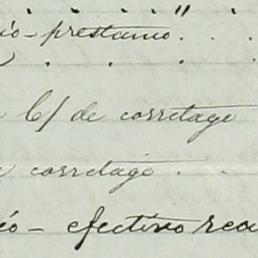 ió - prestamo . . .
C/ de corretage
corretage . .
ió - efectivo reci